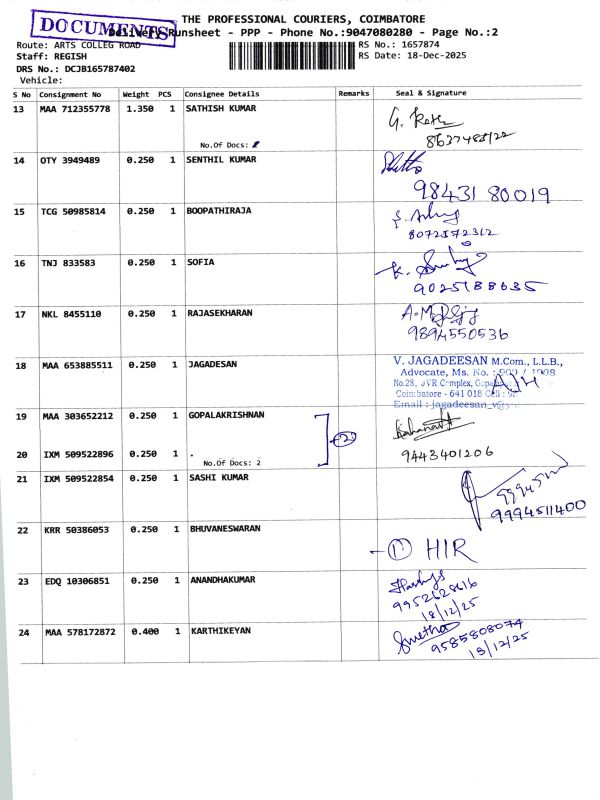 DOCUMENTS
THE PROFESSIONAL COURIERS, COIMBATORE
Delivery Runsheet - PPP - Phone No.:9047080280 - Page No.:2
Route: ARTS COLLEG ROAD
RS No.: 1657874
Staff: REGISH
RS Date: 18-Dec-2025
DRS No.: DCJB165787402
Vehicle:
S No Consignment No Weight PCS Consignee Details Remarks Seal & Signature
13 MAA 712355778 1.350 1 SATHISH KUMAR
No.Of Docs:
14 OTY 3949489 0.250 1 SENTHIL KUMAR
98431 80019
15 TCG 50985814 0.250 1 BOOPATHIRAJA
8072572312
16 TNJ 833583 0.250 1 SOFIA
9025188635
17 NKL 8455110 0.250 1 RAJASEKHARAN
9894550536
18 MAA 653885511 0.250 1 JAGADESAN
V. JAGADEESAN M.Com., L.L.B.,
Advocate, Ms. No. : 900 / 1998
No.28, JVR Complex,
Coimbatore - 641 018 Cell :
Email : jagadeesan_v@
19 MAA 303652212 0.250 1 GOPALAKRISHNAN
20 IXM 509522896 0.250 1 .
No.Of Docs: 2
9443401206
21 IXM 509522854 0.250 1 SASHI KUMAR
9994511400
22 KRR 50386053 0.250 1 BHUVANESWARAN
1 HIR
23 EDQ 10306851 0.250 1 ANANDHAKUMAR
9952628616
18/12/25
24 MAA 578172872 0.400 1 KARTHIKEYAN
Swetha
9585808074
18/12/25